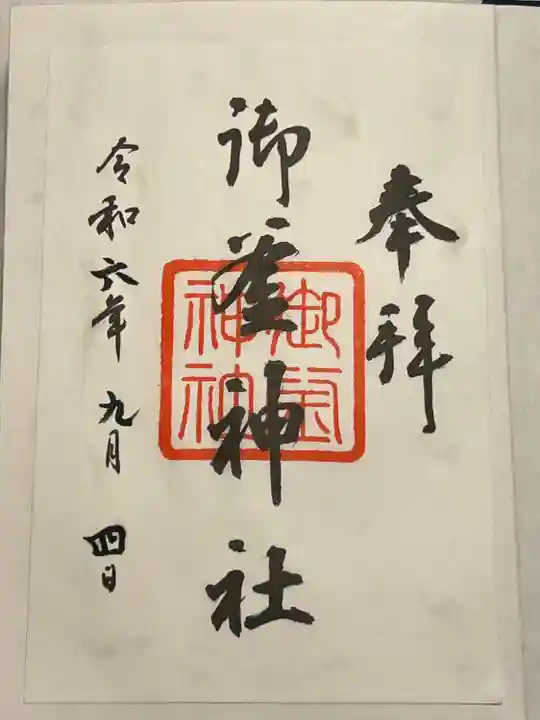 奉拝
御釜神社
御釜神社
令和六年九月四日